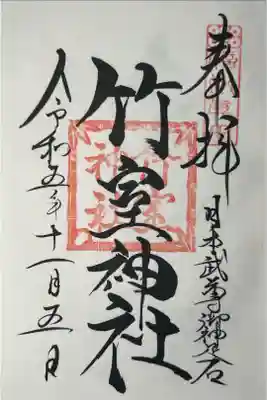 奉拝
日本武尊御神座石
竹室神社
令和五年十一月五日